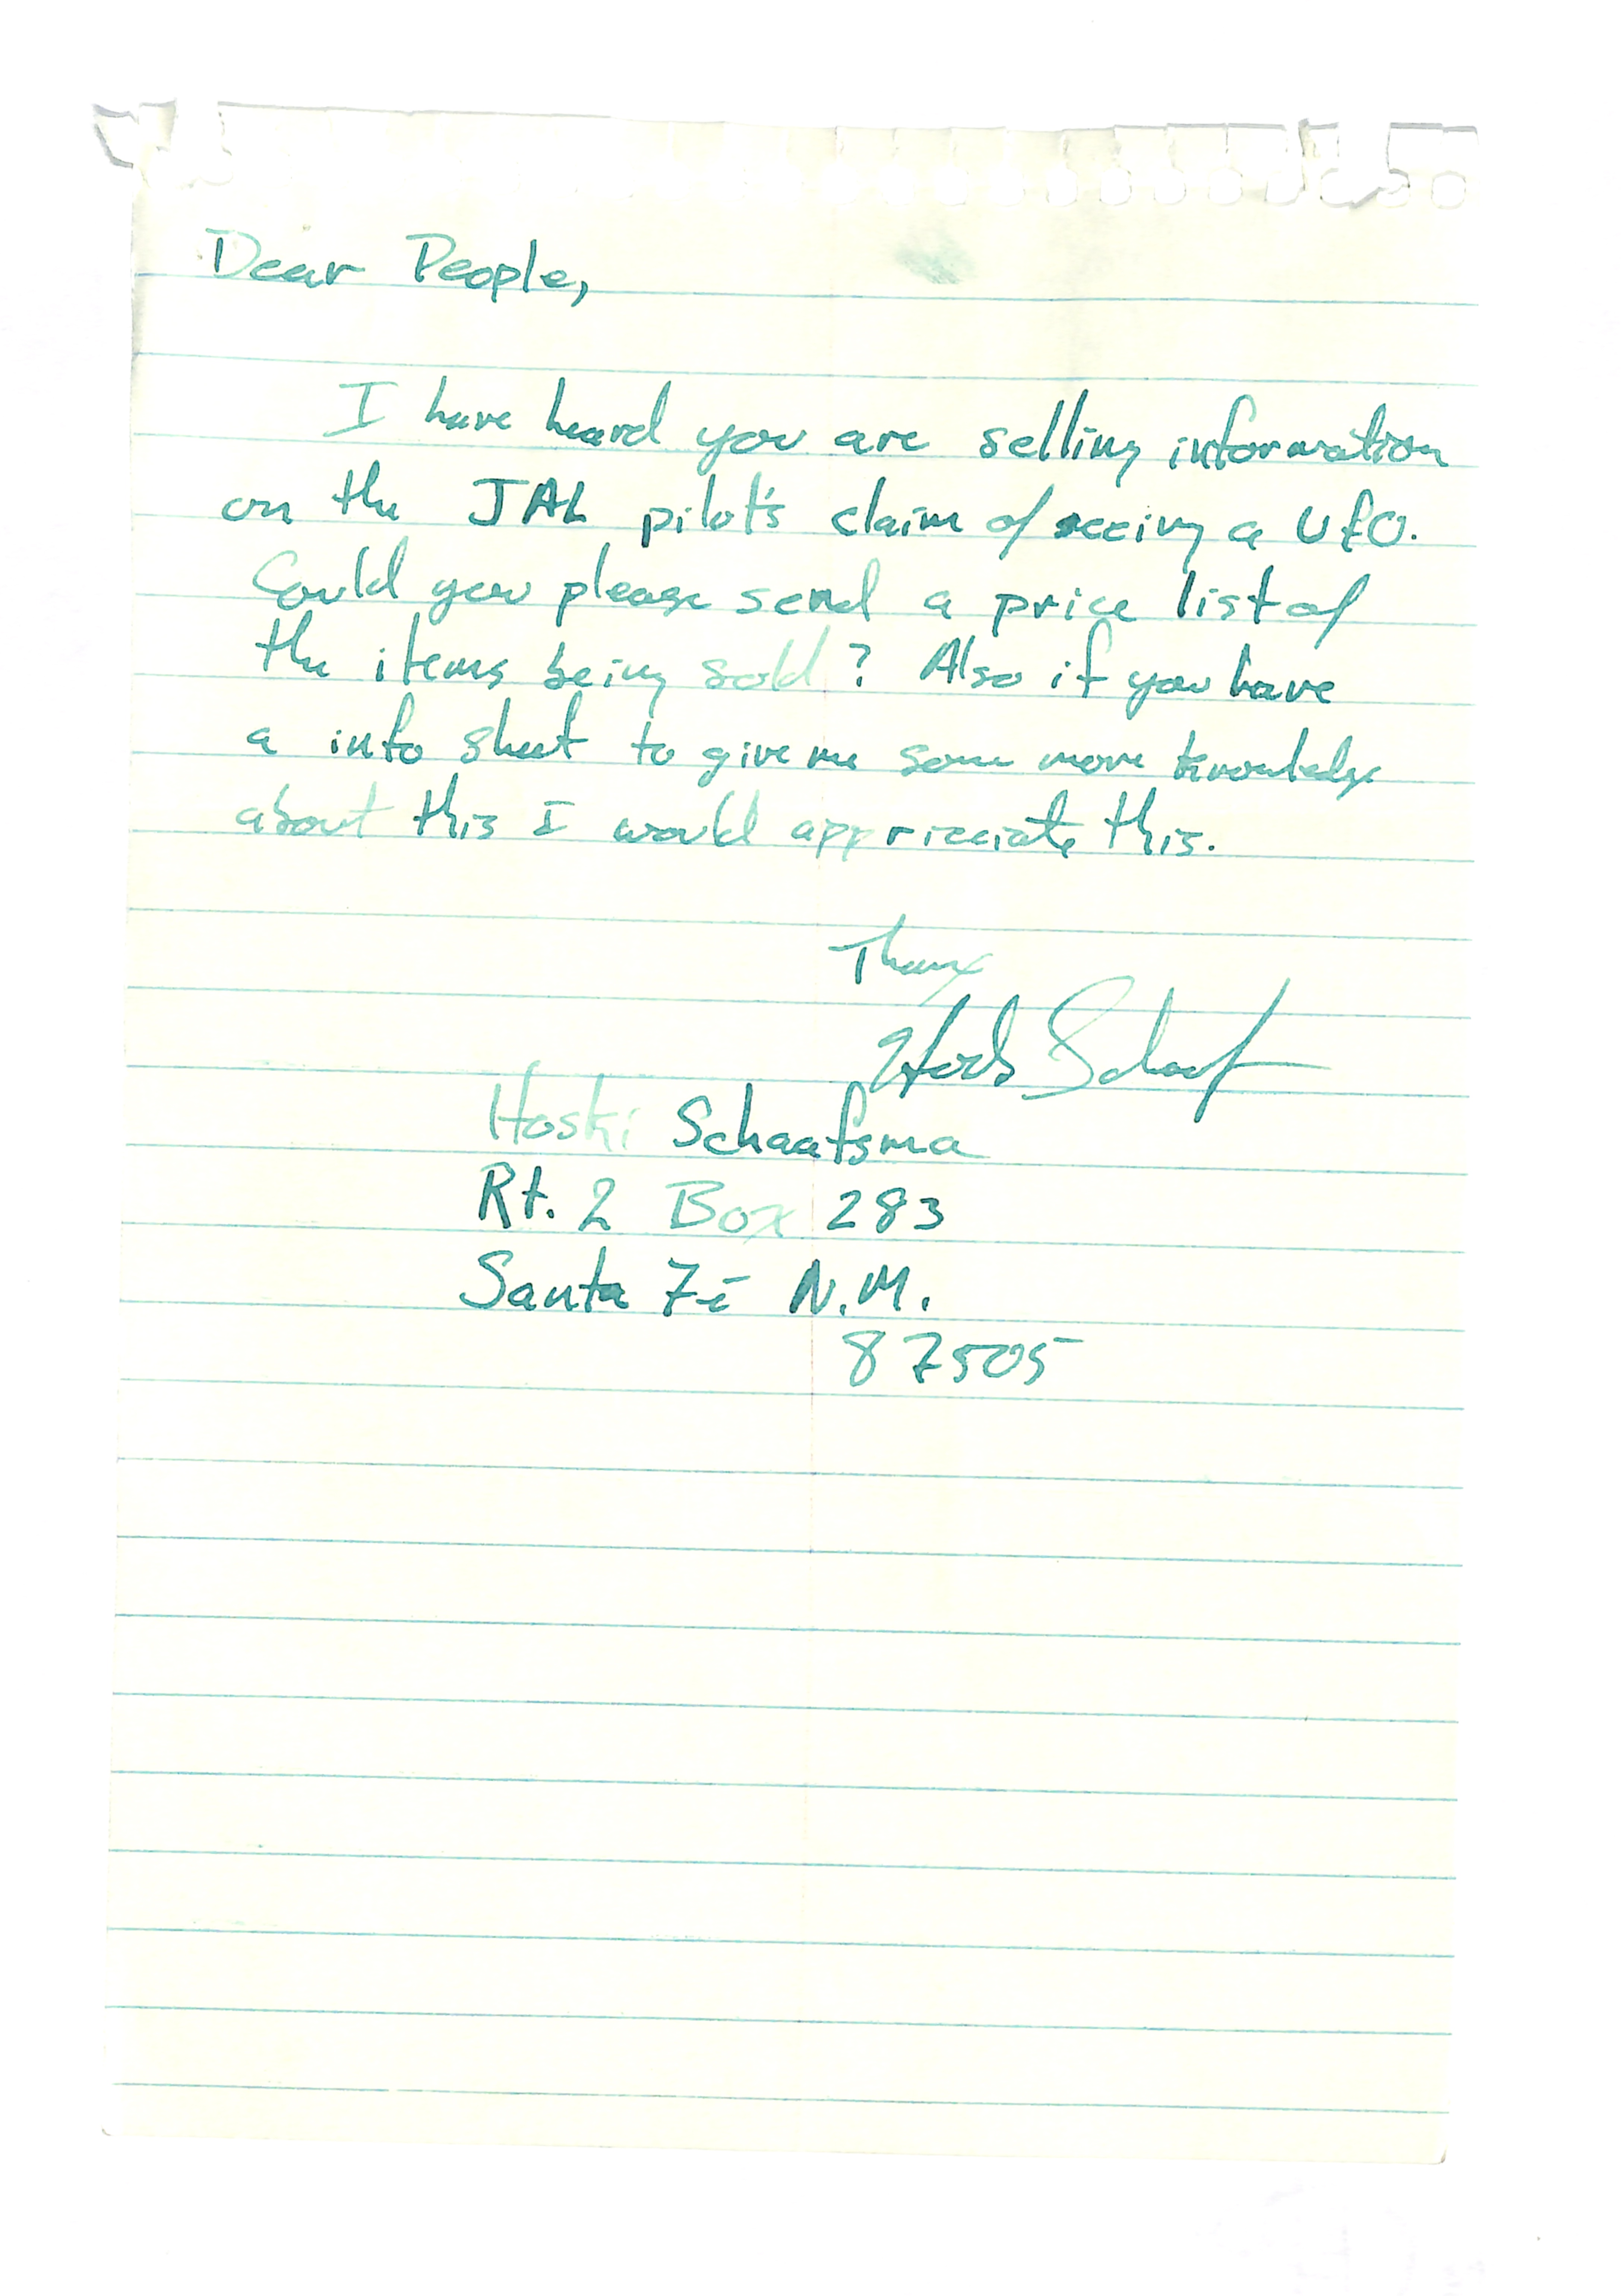 Dear People,
I have heard you are selling information
on the JAL pilot's claim of seeing a UFO.
Could you please send a price list of
the items being sold? Also if you have
a info sheet to give me some more knowledge
about this I would appricciate this.
Thanx
Hoski Schaafsma
Rt. 2 Box 283
Santa Fé N.M.
87505